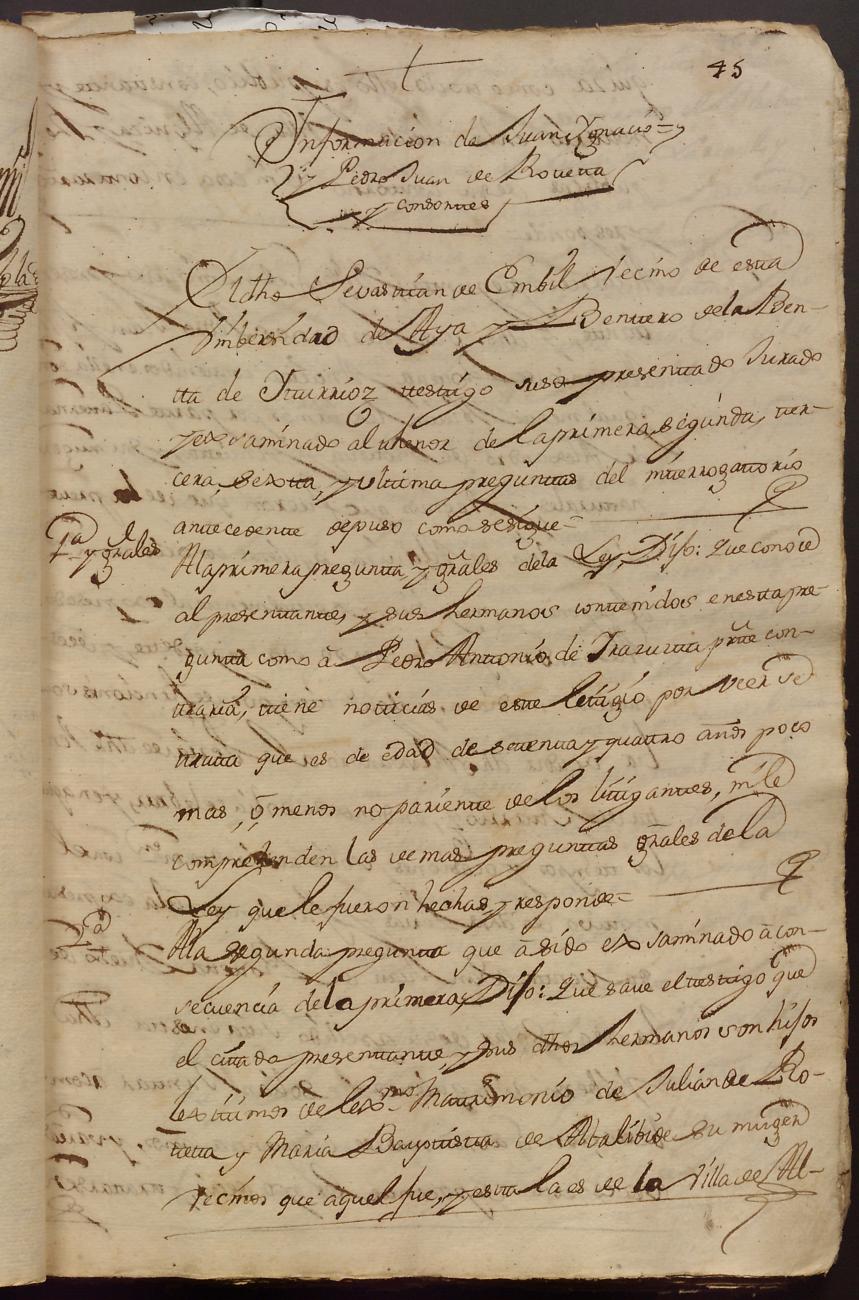 45
Ynformacion de Juan Ygnacio
y Pedro Juan de Rovetta
y consortes
El dho Sevastian de Embil vecino de esta
Vnibersidad de Aya y Bentero de la Ben-
ta de Yturrioz testigo suso presentado Jurado
y exsaminado al thenor de la primera, segunda, ter-
cera sexta, y vltima preguntas del interrogattorio
antecedente depuso como se sigue=
1ª y grales
A la primera pregunta y grales de la Ley, Dijo: Que conoce
al presentante, y sus hermanos contenidos en esta pre-
gunta como â Pedro Antonio de Yrazutta prte con-
traria, tiene noticias de este letigio por veer se
tratta que es de edad de setenta y quattro años poco
mas, ô menos no pariente de los litigantes, ni le
comprehenden las demas preguntas grales de la
Ley que le fueron hechas, y responde=
2ª
A la segunda pregunta que â sido exsaminado â con-
secuencia de la primera, Dijo: Que save el testigo que
el citado presentante, y sus dhos hermanos son hijos
lexitimos de lexmo Matrimonio de Julian de Ro-
vetta y Maria Bauptista de Albalibide su muger
vecinos que aquel fue, y esta la es de la Villa de Al-